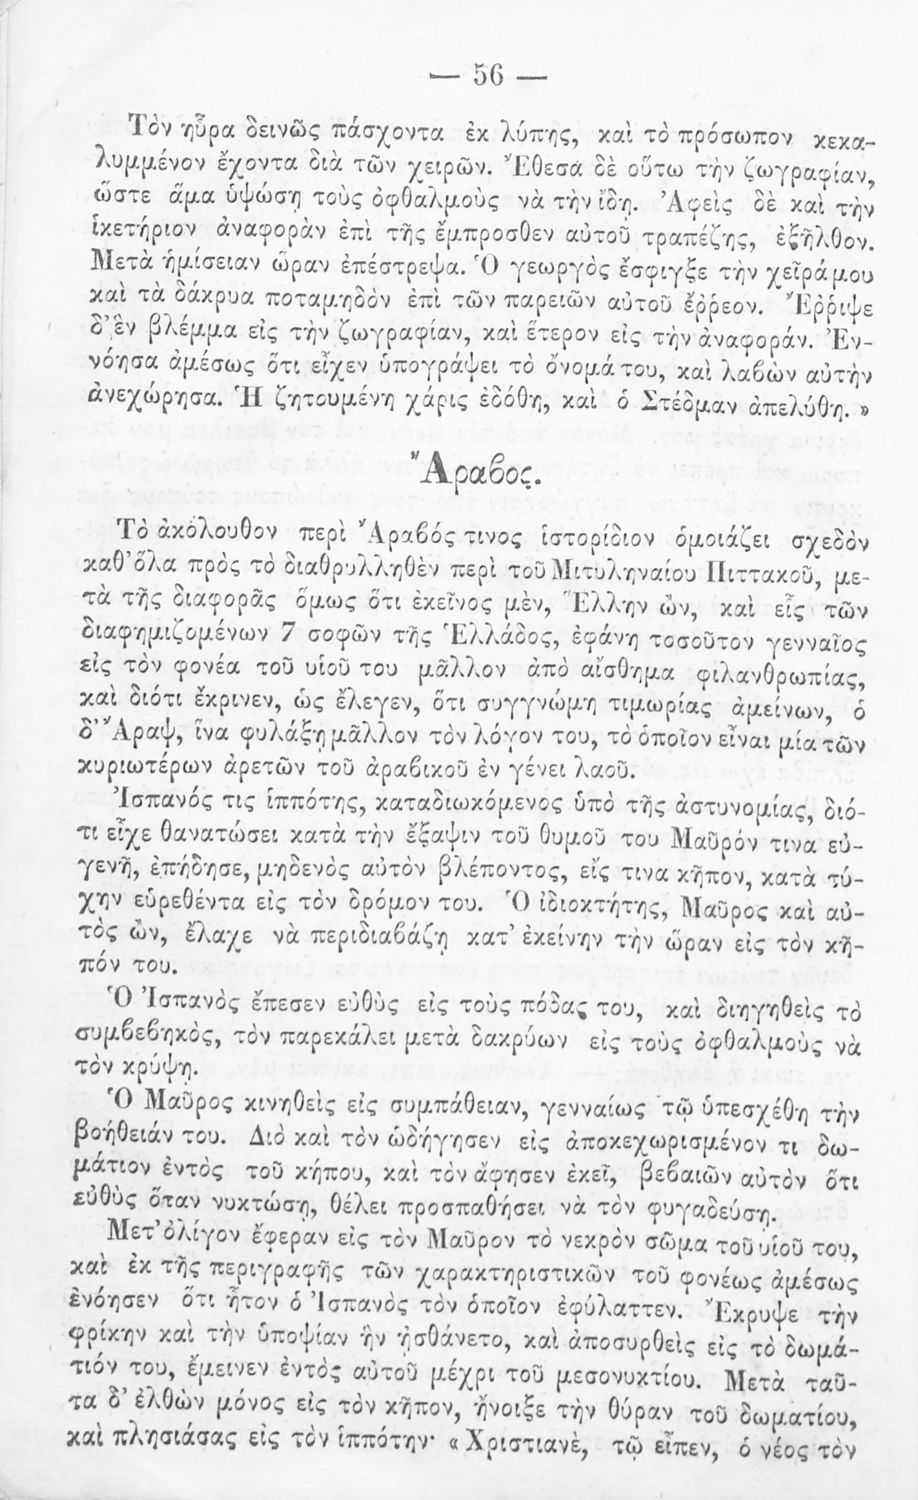 — 56 —
Τὸν ηὗρα δεινῶς πάσχοντα ἐκ λύπης, καὶ τὸ πρόσωπον κεκα-
λυμμένον ἔχοντα διὰ τῶν χειρῶν. Ἔθεσα δὲ οὕτω τὴν ζωγραφίαν,
ὥστε ἅμα ὑψώσῃ τοὺς ὀφθαλμοὺς νὰ τὴν ἴδῃ. Ἀφεὶς δὲ καὶ τὴν
ἱκετήριον ἀναφορὰν ἐπὶ τῆς ἔμπροσθεν αὐτοῦ τραπέζης, ἐξῆλθον.
Μετὰ ἡμίσειαν ὥραν ἐπέστρεψα. Ὁ γεωργὸς ἔσφιγξε τὴν χεῖρά μου
καὶ τὰ δάκρυα ποταμηδὸν ἐπὶ τῶν παρειῶν αὐτοῦ ἔῤῥεον. Ἔῤῥιψε
δ' ἓν βλέμμα εἰς τὴν ζωγραφίαν, καὶ ἕτερον εἰς τὴν ἀναφοράν. Ἐν-
νόησα ἀμέσως ὅτι εἶχεν ὑπογράψει τὸ ὄνομά του, καὶ λαβὼν αὐτὴν
ἀνεχώρησα. Ἡ ζητουμένη χάρις ἐδόθη, καὶ ὁ Στέδμαν ἀπελύθη. »
Ἄραβος.
Τὸ ἀκόλουθον περὶ Ἄραβός τινος ἱστορίδιον ὁμοιάζει σχεδὸν
καθ' ὅλα πρὸς τὸ διαθρυλληθὲν περὶ τοῦ Μιτυληναίου Πιττακοῦ, με-
τὰ τῆς διαφορᾶς ὅμως ὅτι ἐκεῖνος μὲν, Ἕλλην ὢν, καὶ εἷς τῶν
διαφημιζομένων 7 σοφῶν τῆς Ἑλλάδος, ἐφάνη τοσοῦτον γενναῖος
εἰς τὸν φονέα τοῦ υἱοῦ του μᾶλλον ἀπὸ αἴσθημα φιλανθρωπίας,
καὶ διότι ἔκρινεν, ὡς ἔλεγεν, ὅτι συγγνώμη τιμωρίας ἀμείνων, ὁ
δ' Ἄραψ, ἵνα φυλάξῃ μᾶλλον τὸν λόγον του, τὸ ὁποῖον εἶναι μία τῶν
κυριωτέρων ἀρετῶν τοῦ ἀραβικοῦ ἐν γένει λαοῦ.
Ἱσπανός τις ἱππότης, καταδιωκόμενος ὑπὸ τῆς ἀστυνομίας, διό-
τι εἶχε θανατώσει κατὰ τὴν ἔξαψιν τοῦ θυμοῦ του Μαῦρόν τινα εὐ-
γενῆ, ἐπήδησε, μηδενὸς αὐτὸν βλέποντος, εἴς τινα κῆπον, κατὰ τύ-
χην εὑρεθέντα εἰς τὸν δρόμον του. Ὁ ἰδιοκτήτης, Μαῦρος καὶ αὐ-
τὸς ὢν, ἔλαχε νὰ περιδιαβάζῃ κατ' ἐκείνην τὴν ὥραν εἰς τὸν κῆ-
πόν του.
Ὁ Ἱσπανὸς ἔπεσεν εὐθὺς εἰς τοὺς πόδας του, καὶ διηγηθεὶς τὸ
συμβεβηκὸς, τὸν παρεκάλει μετὰ δακρύων εἰς τοὺς ὀφθαλμοὺς νὰ
τὸν κρύψῃ.
Ὁ Μαῦρος κινηθεὶς εἰς συμπάθειαν, γενναίως τῷ ὑπεσχέθη τὴν
βοήθειάν του. Διὸ καὶ τὸν ὡδήγησεν εἰς ἀποκεχωρισμένον τι δω-
μάτιον ἐντὸς τοῦ κήπου, καὶ τὸν ἄφησεν ἐκεῖ, βεβαιῶν αὐτὸν ὅτι
εὐθὺς ὅταν νυκτώσῃ, θέλει προσπαθήσει νὰ τὸν φυγαδεύσῃ.
Μετ' ὀλίγον ἔφεραν εἰς τὸν Μαῦρον τὸ νεκρὸν σῶμα τοῦ υἱοῦ του,
καὶ ἐκ τῆς περιγραφῆς τῶν χαρακτηριστικῶν τοῦ φονέως ἀμέσως
ἐνόησεν ὅτι ἦτον ὁ Ἱσπανὸς τὸν ὁποῖον ἐφύλαττεν. Ἔκρυψε τὴν
φρίκην καὶ τὴν ὑποψίαν ἣν ᾐσθάνετο, καὶ ἀποσυρθεὶς εἰς τὸ δωμά-
τιόν του, ἔμεινεν ἐντὸς αὐτοῦ μέχρι τοῦ μεσονυκτίου. Μετὰ ταῦ-
τα δ' ἐλθὼν μόνος εἰς τὸν κῆπον, ἤνοιξε τὴν θύραν τοῦ δωματίου,
καὶ πλησιάσας εἰς τὸν ἱππότην· « Χριστιανὲ, τῷ εἶπεν, ὁ νέος τὸν